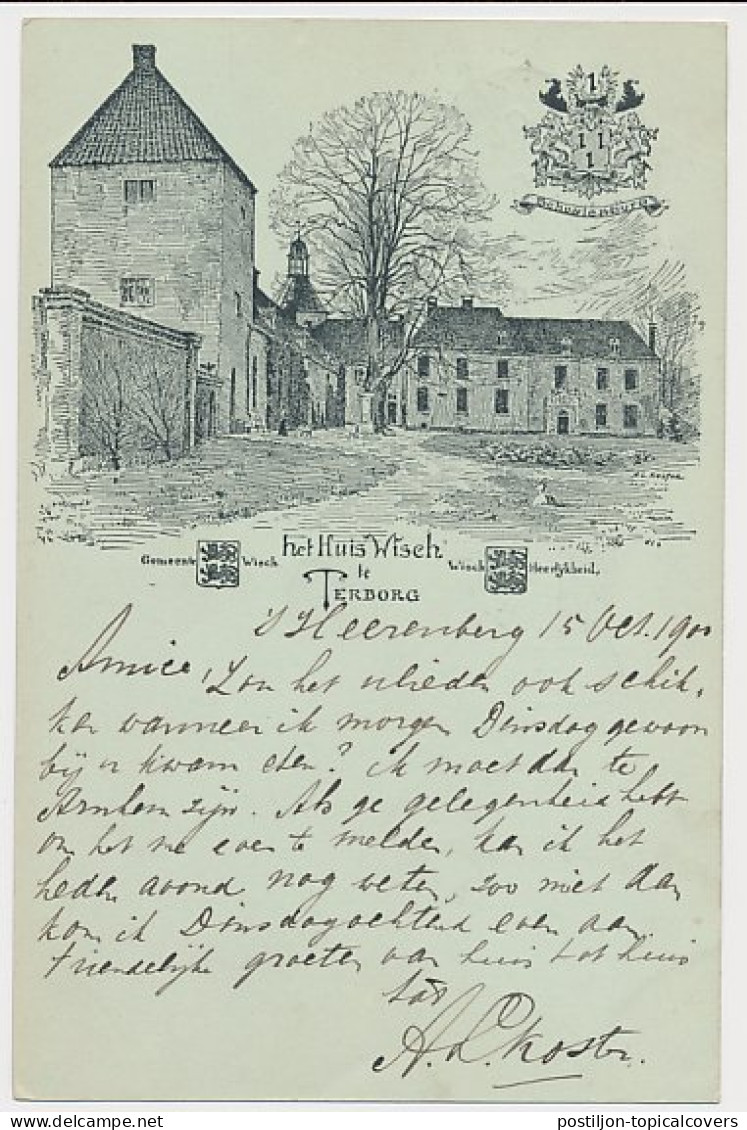 Schuylenburg
A. L. Koster
Gemeente Wisch
het Huis Wisch
te
TERBORG
Wisch Heerlykheid,
's Heerenberg 15 Oct. 1900
Amice, Zou het ulieden ook schik-
ken wanneer ik morgen Dinsdag gewoon
bij u kwam eten? ik moet dan te
Arnhem zijn. Als ge gelegenheid hebt
om het me even te melden, kan ik het
heden avond nog weten, zoo niet dan
kom ik Dinsdagochtend even aan.
Vriendelijke groeten van huis tot huis
tàt
A. L. Koster.
postiljon-topicalcovers